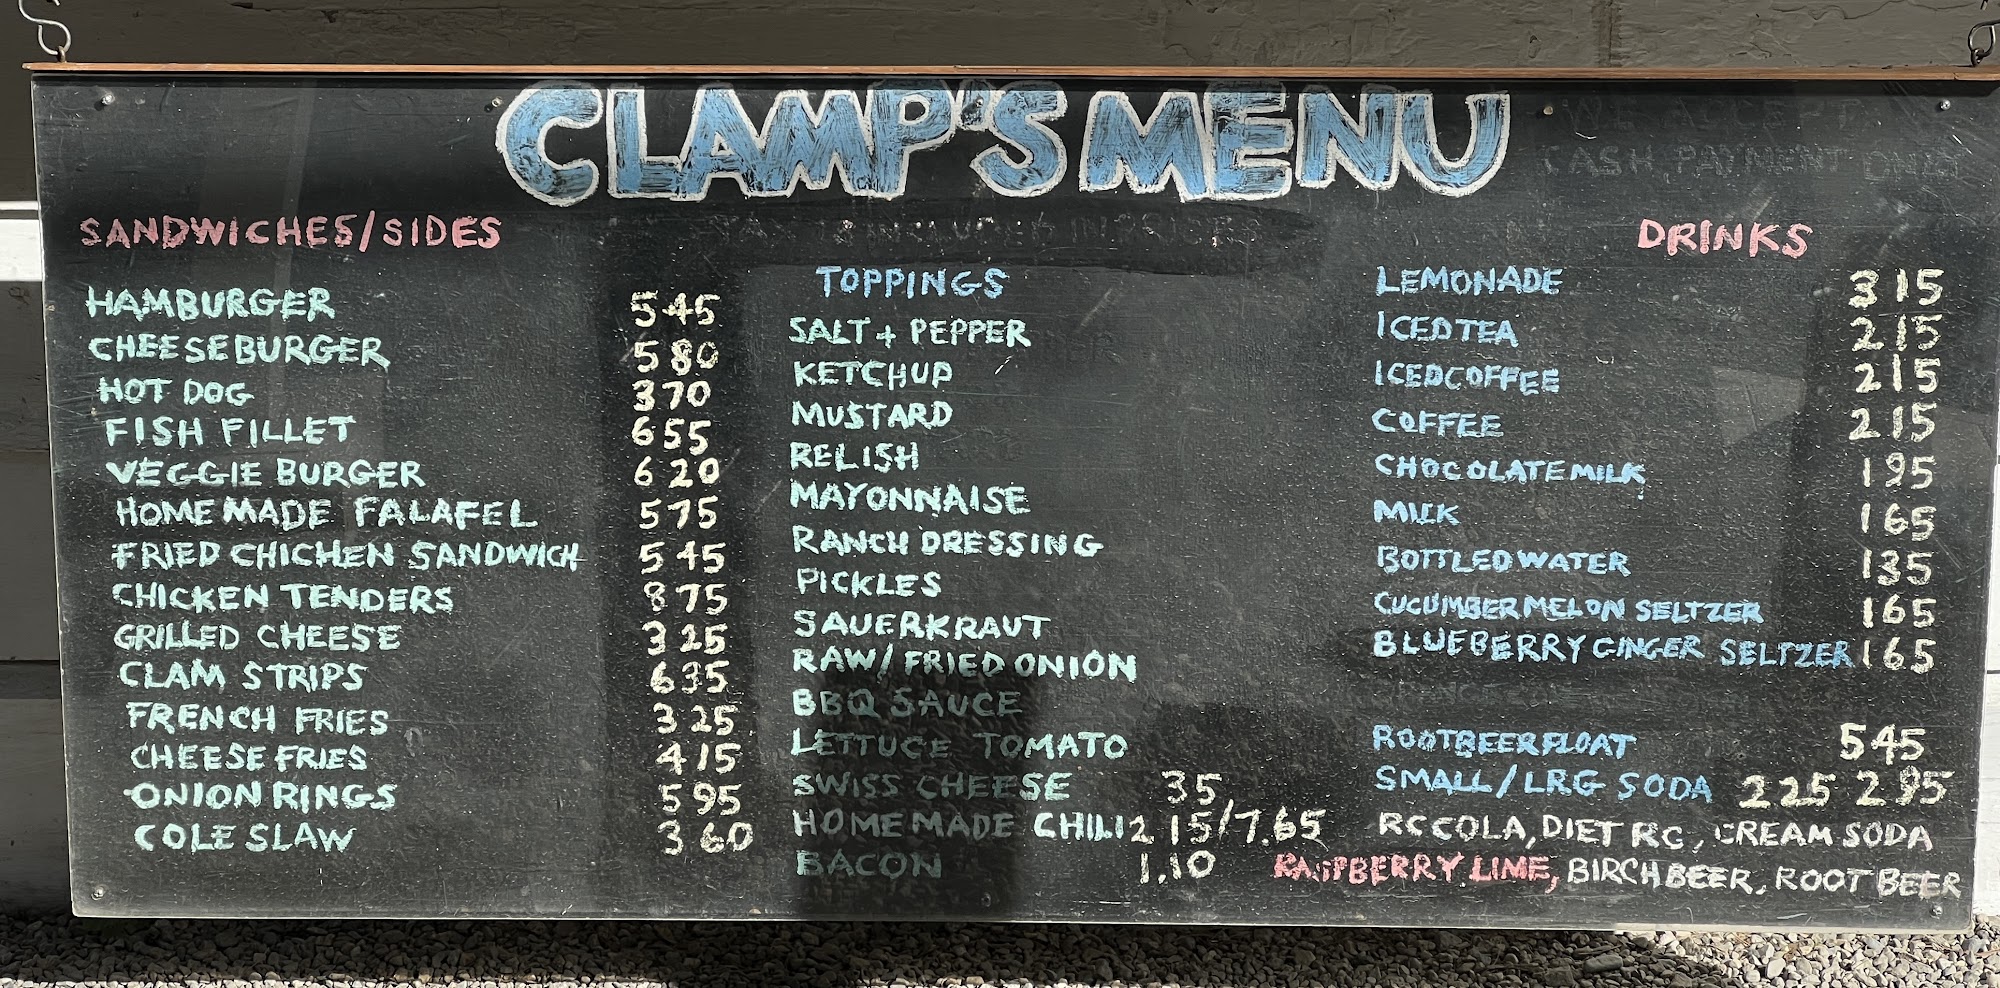 CLAMP'S MENU
CASH PAYMENT ONLY
SANDWICHES/SIDES
HAMBURGER 545
CHEESEBURGER 580
HOT DOG 370
FISH FILLET 655
VEGGIE BURGER 620
HOMEMADE FALAFEL 575
FRIED CHICHEN SANDWICH 545
CHICKEN TENDERS 875
GRILLED CHEESE 325
CLAM STRIPS 635
FRENCH FRIES 325
CHEESE FRIES 415
ONION RINGS 595
COLE SLAW 360
TOPPINGS
SALT + PEPPER
KETCHUP
MUSTARD
RELISH
MAYONNAISE
RANCH DRESSING
PICKLES
SAUERKRAUT
RAW/FRIED ONION
BBQ SAUCE
LETTUCE TOMATO
SWISS CHEESE 35
HOMEMADE CHILI 2 15/7.65
BACON 1.10
DRINKS
LEMONADE 315
ICED TEA 215
ICED COFFEE 215
COFFEE 215
CHOCOLATE MILK 195
MILK 165
BOTTLED WATER 135
CUCUMBER MELON SELTZER 165
BLUEBERRY GINGER SELTZER 165
ROOTBEER FLOAT 545
SMALL/LRG SODA 225 295
RC COLA, DIET RC, CREAM SODA
RASPBERRY LIME, BIRCH BEER, ROOT BEER